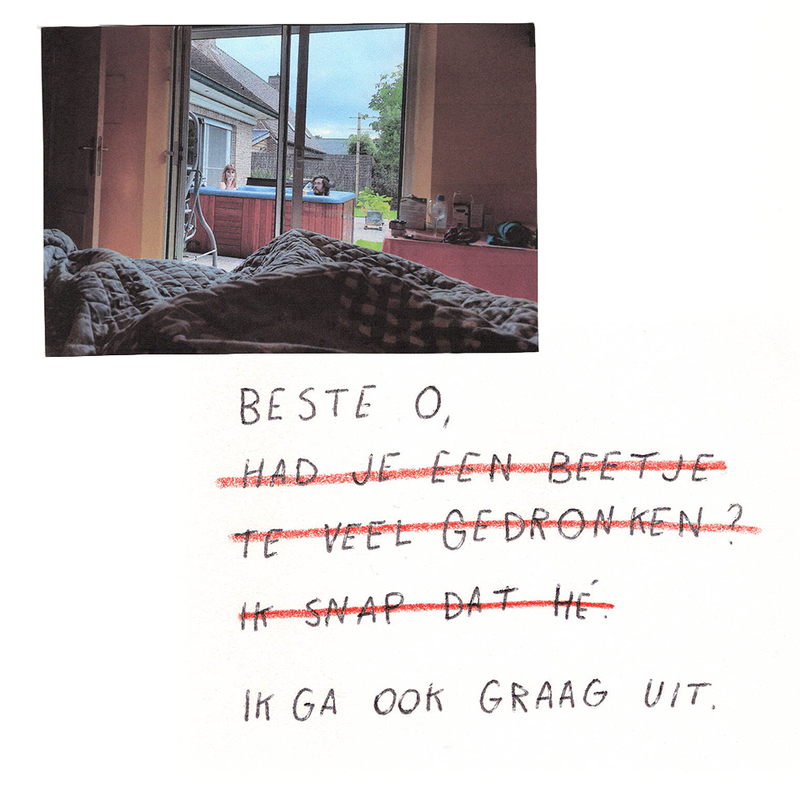 BESTE O,
HAD JE EEN BEETJE
TE VEEL GEDRONKEN?
IK SNAP DAT HÉ.
IK GA OOK GRAAG UIT.